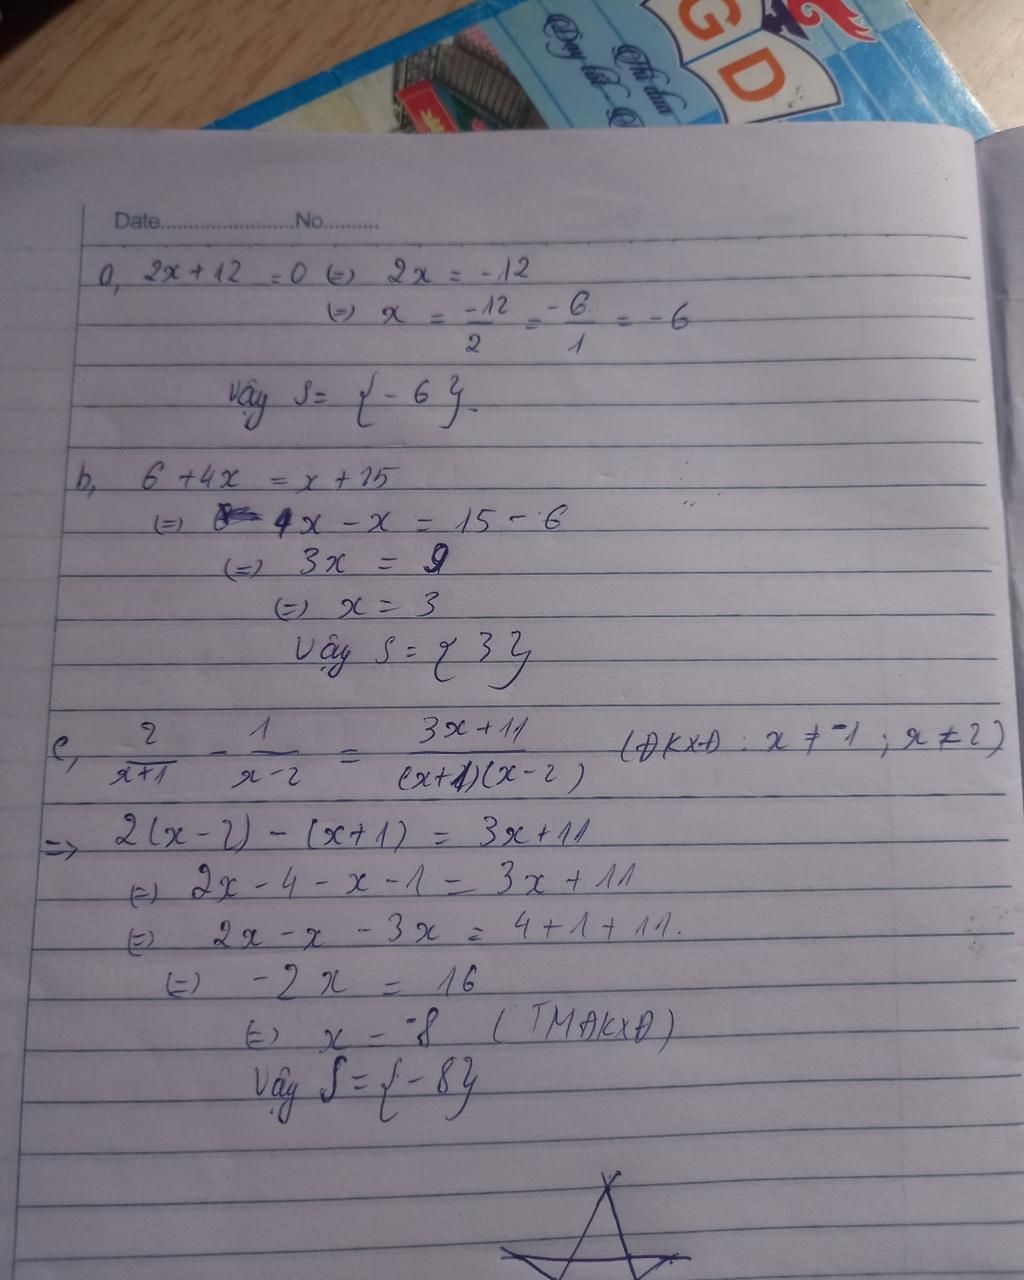 GD
Thi đua
Dạy tốt -
Date.......................No..........
a, 2x + 12 = 0 (=) 2x = -12
(=) x = -12/2 = -6/1 = -6
Vậy S = {-6}.
b, 6 + 4x = x + 15
(=) 4x - x = 15 - 6
(=) 3x = 9
(=) x = 3
Vậy S = {3}
c, 2/(x+1) - 1/(x-2) = (3x+11)/((x+1)(x-2)) (ĐKXĐ : x ≠ -1 ; x ≠ 2)
=> 2(x-2) - (x+1) = 3x+11
(=) 2x - 4 - x - 1 = 3x + 11
(=) 2x - x - 3x = 4 + 1 + 11.
(=) -2x = 16
(=) x = -8 (TMĐKXĐ)
Vậy S = {-8}